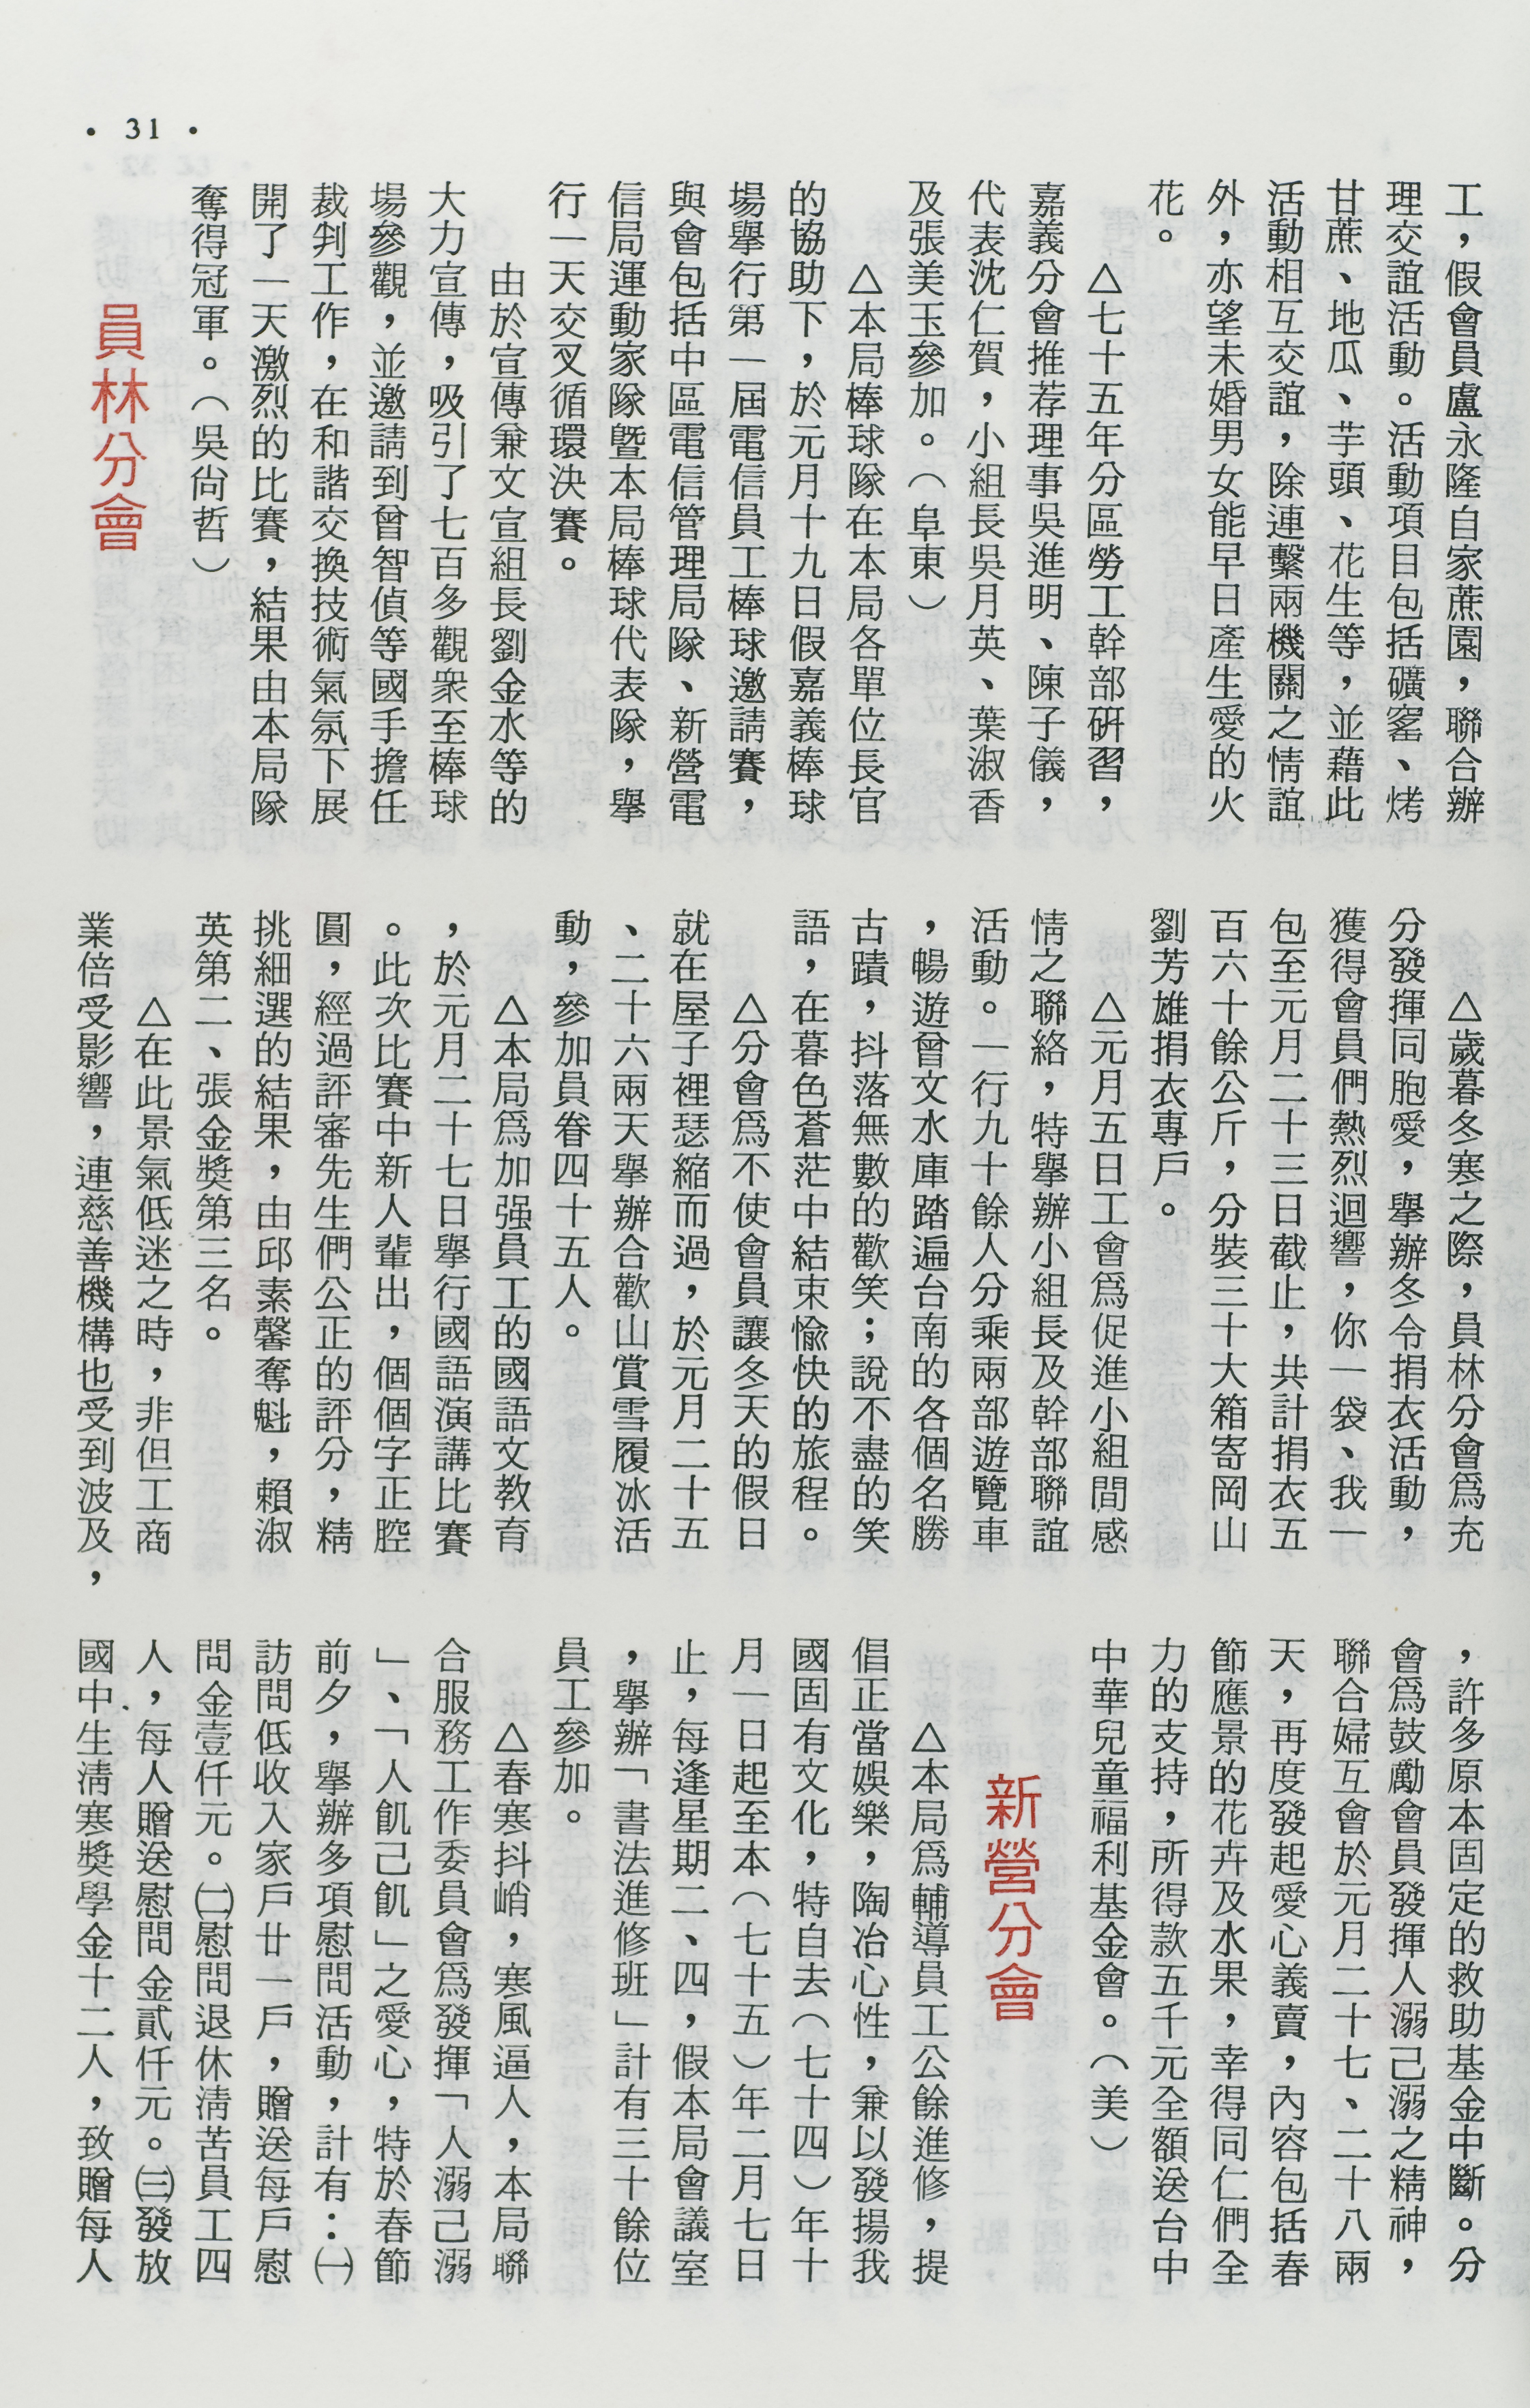 • 31 •
工，假會員盧永隆自家蔗園，聯合辦
理交誼活動。活動項目包括礦窰、烤
甘蔗、地瓜、芋頭、花生等，並藉此
活動相互交誼，除連繫兩機關之情誼
外，亦望未婚男女能早日產生愛的火
花。
△七十五年分區勞工幹部硏習，
嘉義分會推荐理事吳進明、陳子儀，
代表沈仁賀，小組長吳月英、葉淑香
及張美玉參加。（阜東）
△本局棒球隊在本局各單位長官
的協助下，於元月十九日假嘉義棒球
場舉行第一屆電信員工棒球邀請賽，
與會包括中區電信管理局隊、新營電
信局運動家隊暨本局棒球代表隊，舉
行一天交叉循環決賽。
由於宣傳兼文宣組長劉金水等的
大力宣傳，吸引了七百多觀衆至棒球
場參觀，並邀請到曾智偵等國手擔任
裁判工作，在和諧交換技術氣氛下展
開了一天激烈的比賽，結果由本局隊
奪得冠軍。（吳尙哲）
員林分會
△歲暮冬寒之際，員林分會爲充
分發揮同胞愛，舉辦冬令捐衣活動，
獲得會員們熱烈迴響，你一袋、我一
包至元月二十三日截止，共計捐衣五
百六十餘公斤，分裝三十大箱寄岡山
劉芳雄捐衣專戶。
△元月五日工會爲促進小組間感
情之聯絡，特舉辦小組長及幹部聯誼
活動。一行九十餘人分乘兩部遊覽車
，暢遊曾文水庫踏遍台南的各個名勝
古蹟，抖落無數的歡笑；說不盡的笑
語，在暮色蒼茫中結束愉快的旅程。
△分會爲不使會員讓冬天的假日
就在屋子裡瑟縮而過，於元月二十五
、二十六兩天舉辦合歡山賞雪履冰活
動，參加員眷四十五人。
△本局爲加强員工的國語文教育
，於元月二十七日舉行國語演講比賽
。此次比賽中新人輩出，個個字正腔
圓，經過評審先生們公正的評分，精
挑細選的結果，由邱素馨奪魁，賴淑
英第二、張金獎第三名。
△在此景氣低迷之時，非但工商
業倍受影響，連慈善機構也受到波及，
，許多原本固定的救助基金中斷。分
會爲鼓勵會員發揮人溺己溺之精神，
聯合婦互會於元月二十七、二十八兩
天，再度發起愛心義賣，內容包括春
節應景的花卉及水果，幸得同仁們全
力的支持，所得款五千元全額送台中
中華兒童福利基金會。（美）
新營分會
△本局爲輔導員工公餘進修，提
倡正當娛樂，陶冶心性，兼以發揚我
國固有文化，特自去（七十四）年十
月一日起至本（七十五）年二月七日
止，每逢星期二、四，假本局會議室
，舉辦「書法進修班」計有三十餘位
員工參加。
△春寒抖峭，寒風逼人，本局聯
合服務工作委員會爲發揮「人溺己溺
」、「人飢己飢」之愛心，特於春節
前夕，舉辦多項慰問活動，計有：㈠
訪問低收入家戶廿一戶，贈送每戶慰
問金壹仟元。㈡慰問退休淸苦員工四
人，每人贈送慰問金貳仟元。㈢發放
國中生淸寒獎學金十二人，致贈每人